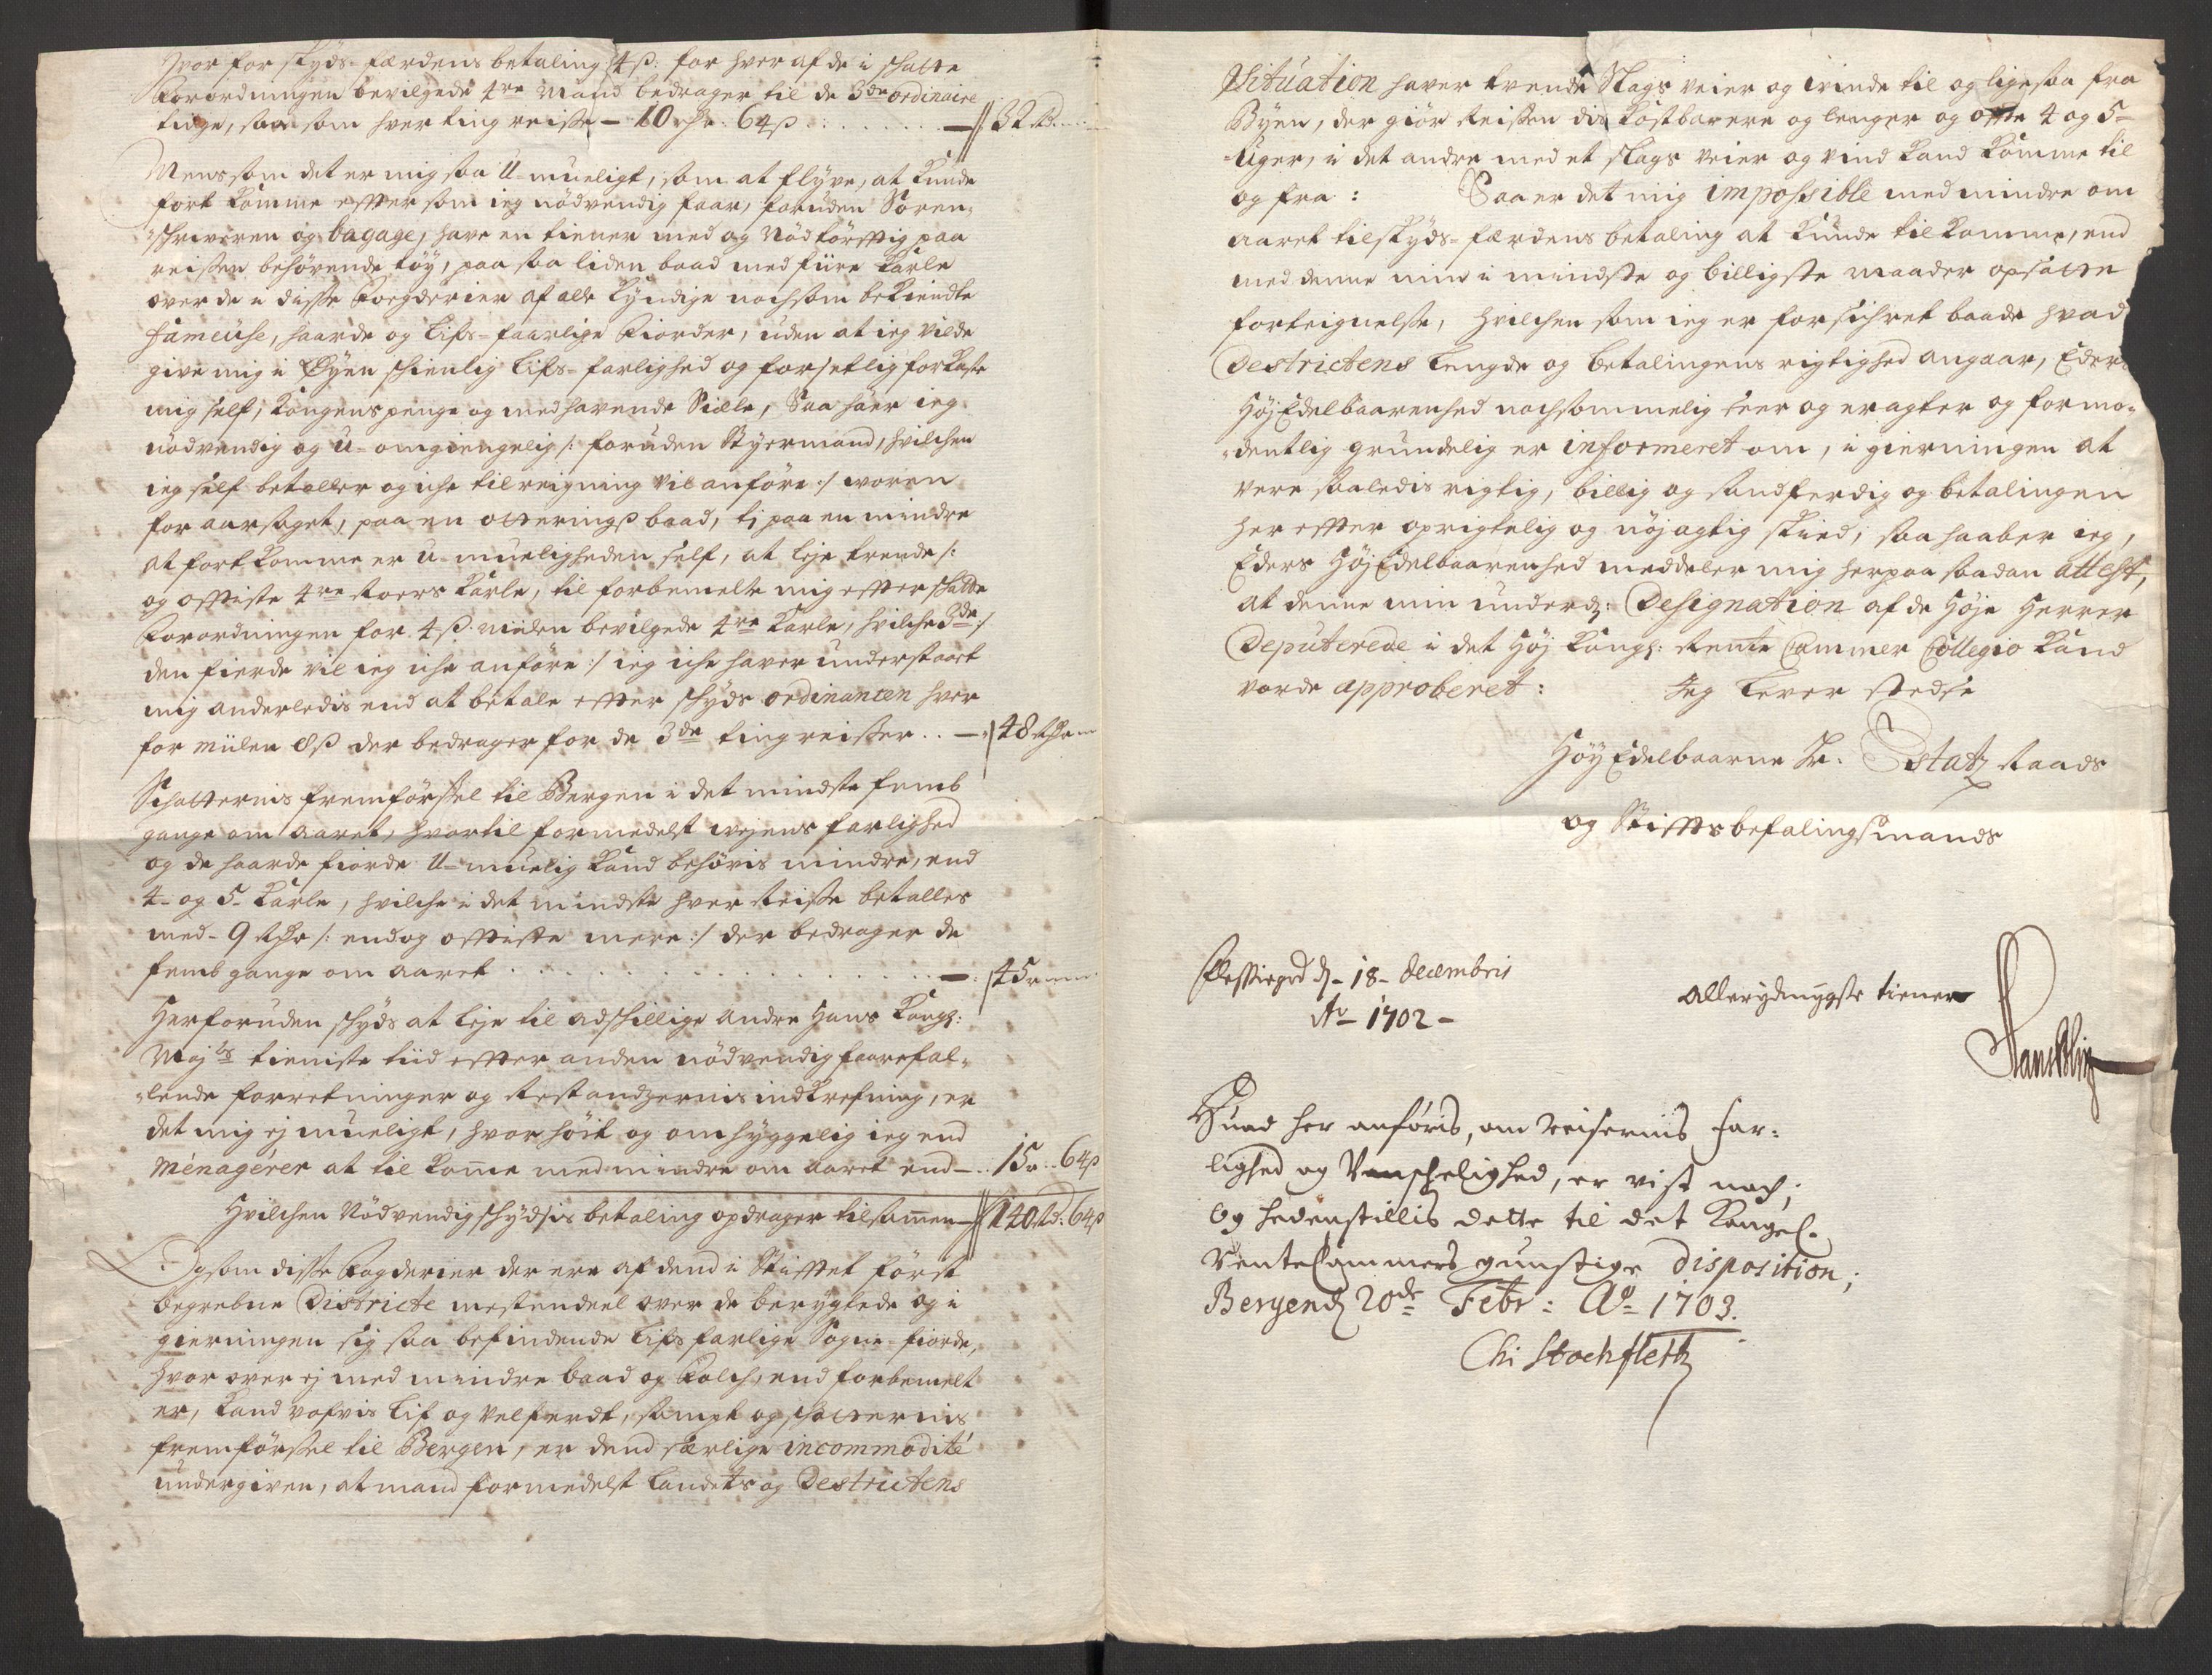 Hvor for skyds-færdens betaling 4ß: for hver af de i schatte
Forordningen bevilgede 4re Mand bedrager til de 3de ordinaire
tinge, saasom hver ting reisse - 10 rdr: 64ß . . . . . . 32 Rd
Mens som det er mig saa U-mueligt, som at flyve, at kunde
fort komme effter som ieg nödvendig faar, foruden Soren-
schriveren og bagage, have en tiener med og Nödtörfftig paa
reissen behövende töy, paa saa liden baad med fiire karle
over de i disse Foegderier af alle kyndige nochsom bekiendte
fameuse, haarde og Lifs-faarlige Fiorder, uden at ieg vilde
give mig i Øyen schienlig Lifs-farlighed og forsetlig forkaste
mig self, kongens penge og medhavende Siæle, Saa haer ieg
nödvendig og U-omgiengelig /: foruden Styermand, hvilchen
ieg self betaller og iche til reigning vil anföre :/ woren
for aarsaget, paa en otteringß baad, tj paa en mindre
at fortkomme er U-mueligheden self, at leje trende /:
og offtiste 4re roers karle, til forbemelte mig effter schatte
Forordningen for 4ß. miilen bevilgede 4re karle, hvilche 3de :/
den fierde vil ieg iche anföre :/ ieg iche haver understaaet
mig anderledis end at betale effter schyds ordinancen hver
for miilen 8ß der bedrager for de 3de ting reisser . . - 48 Rdr
Schatternis fremförssel til Bergen i det mindste femb
gange om aaret, hvortil formedelst wejens farlighed
og de haarde fiorde U-muelig kand behövis mindre, end
4- og 5- karle, hvilche i det mindste hver Reisse betalles
med - 9 Rdr /: endog offtiste mere :/ der bedrager de
femb gange om aaret . . . . . . . . . - 45
Herforuden schyds at leje til adschillige andre Hans Kongl:
Majts tieniste tiid effter anden nödvendig faarefal-
lende forretninger og Restandzernis indkrefning, er
det mig ej mueligt, hvor höit og omhyggelig ieg end
ménagérer at til kome med mindre om aaret end - . . 15 . . 64ß
Hvilchen Nödvendig schydsis betaling opdrager tilsamen - 140 Rd: 64ß
Og som disse Fogderier der ere af dend i Stifftet först
begrebne Districte mestendeel over de berygtede og i
gierningen sig saa befindende Lifsfarlige Sogne-fiorde,
hvor over ej med mindre baad og Folch, end forbemelt
er, kand vofvis Lif og velferdt, sampt og schatternis
fremförssel til Bergen, er dend særlige incommodité
undergiven, at mand formedelst Landets og Destrictens
Situation haver tvende Slags veier og vinde til og ligesaa fra
Byen, der giör Reissen dis kostbarere og lenger og offte 4 og 5-
Uger, i det andre med et slags veier og vind kand komme til
og fra: Saa er det mig impossible med mindre om
aaret til skyds-færdens betaling at kunde til komme, end
med denne min i mindste og billigste maader opsatte
forteignelse, hvilchen som ieg er forsichret baade hvad
Destrictens lengde og betalingens rigtighed angaar, Eders
HöjEdelbaarenhed nochsommelig seer og eragter og formo-
dentlig grundelig er informeret om, i gierningen at
vere saaledis rigtig, billig og sandferdig og betalingen
her effter oprigtelig og nöjagtig skeed; saa haaber ieg,
Eders HöjEdelbaarenhed meddeler mig herpaa saadan attest,
at denne min underd: Designation af de Höje Herrer
Deputerede i det Höj Kongl: Rente Cammer Collegio kand
vorde approberet: Jeg lever stedse
HöyEdelbaarne Hr. Etatz Raads
og Stifftsbefalingsmands
d. 18 - decembris
Ao 1702 -
allerydmygste tiener
Hvad her anföris, om reisernis far-
lighed og Vanschelighed, er vist noch;
Og hedenstillis dette til det Kongel.
Rente Cammers gunstige disposition;
Bergen d 20de Febr: Ao 1703.
Chr Stochfleth